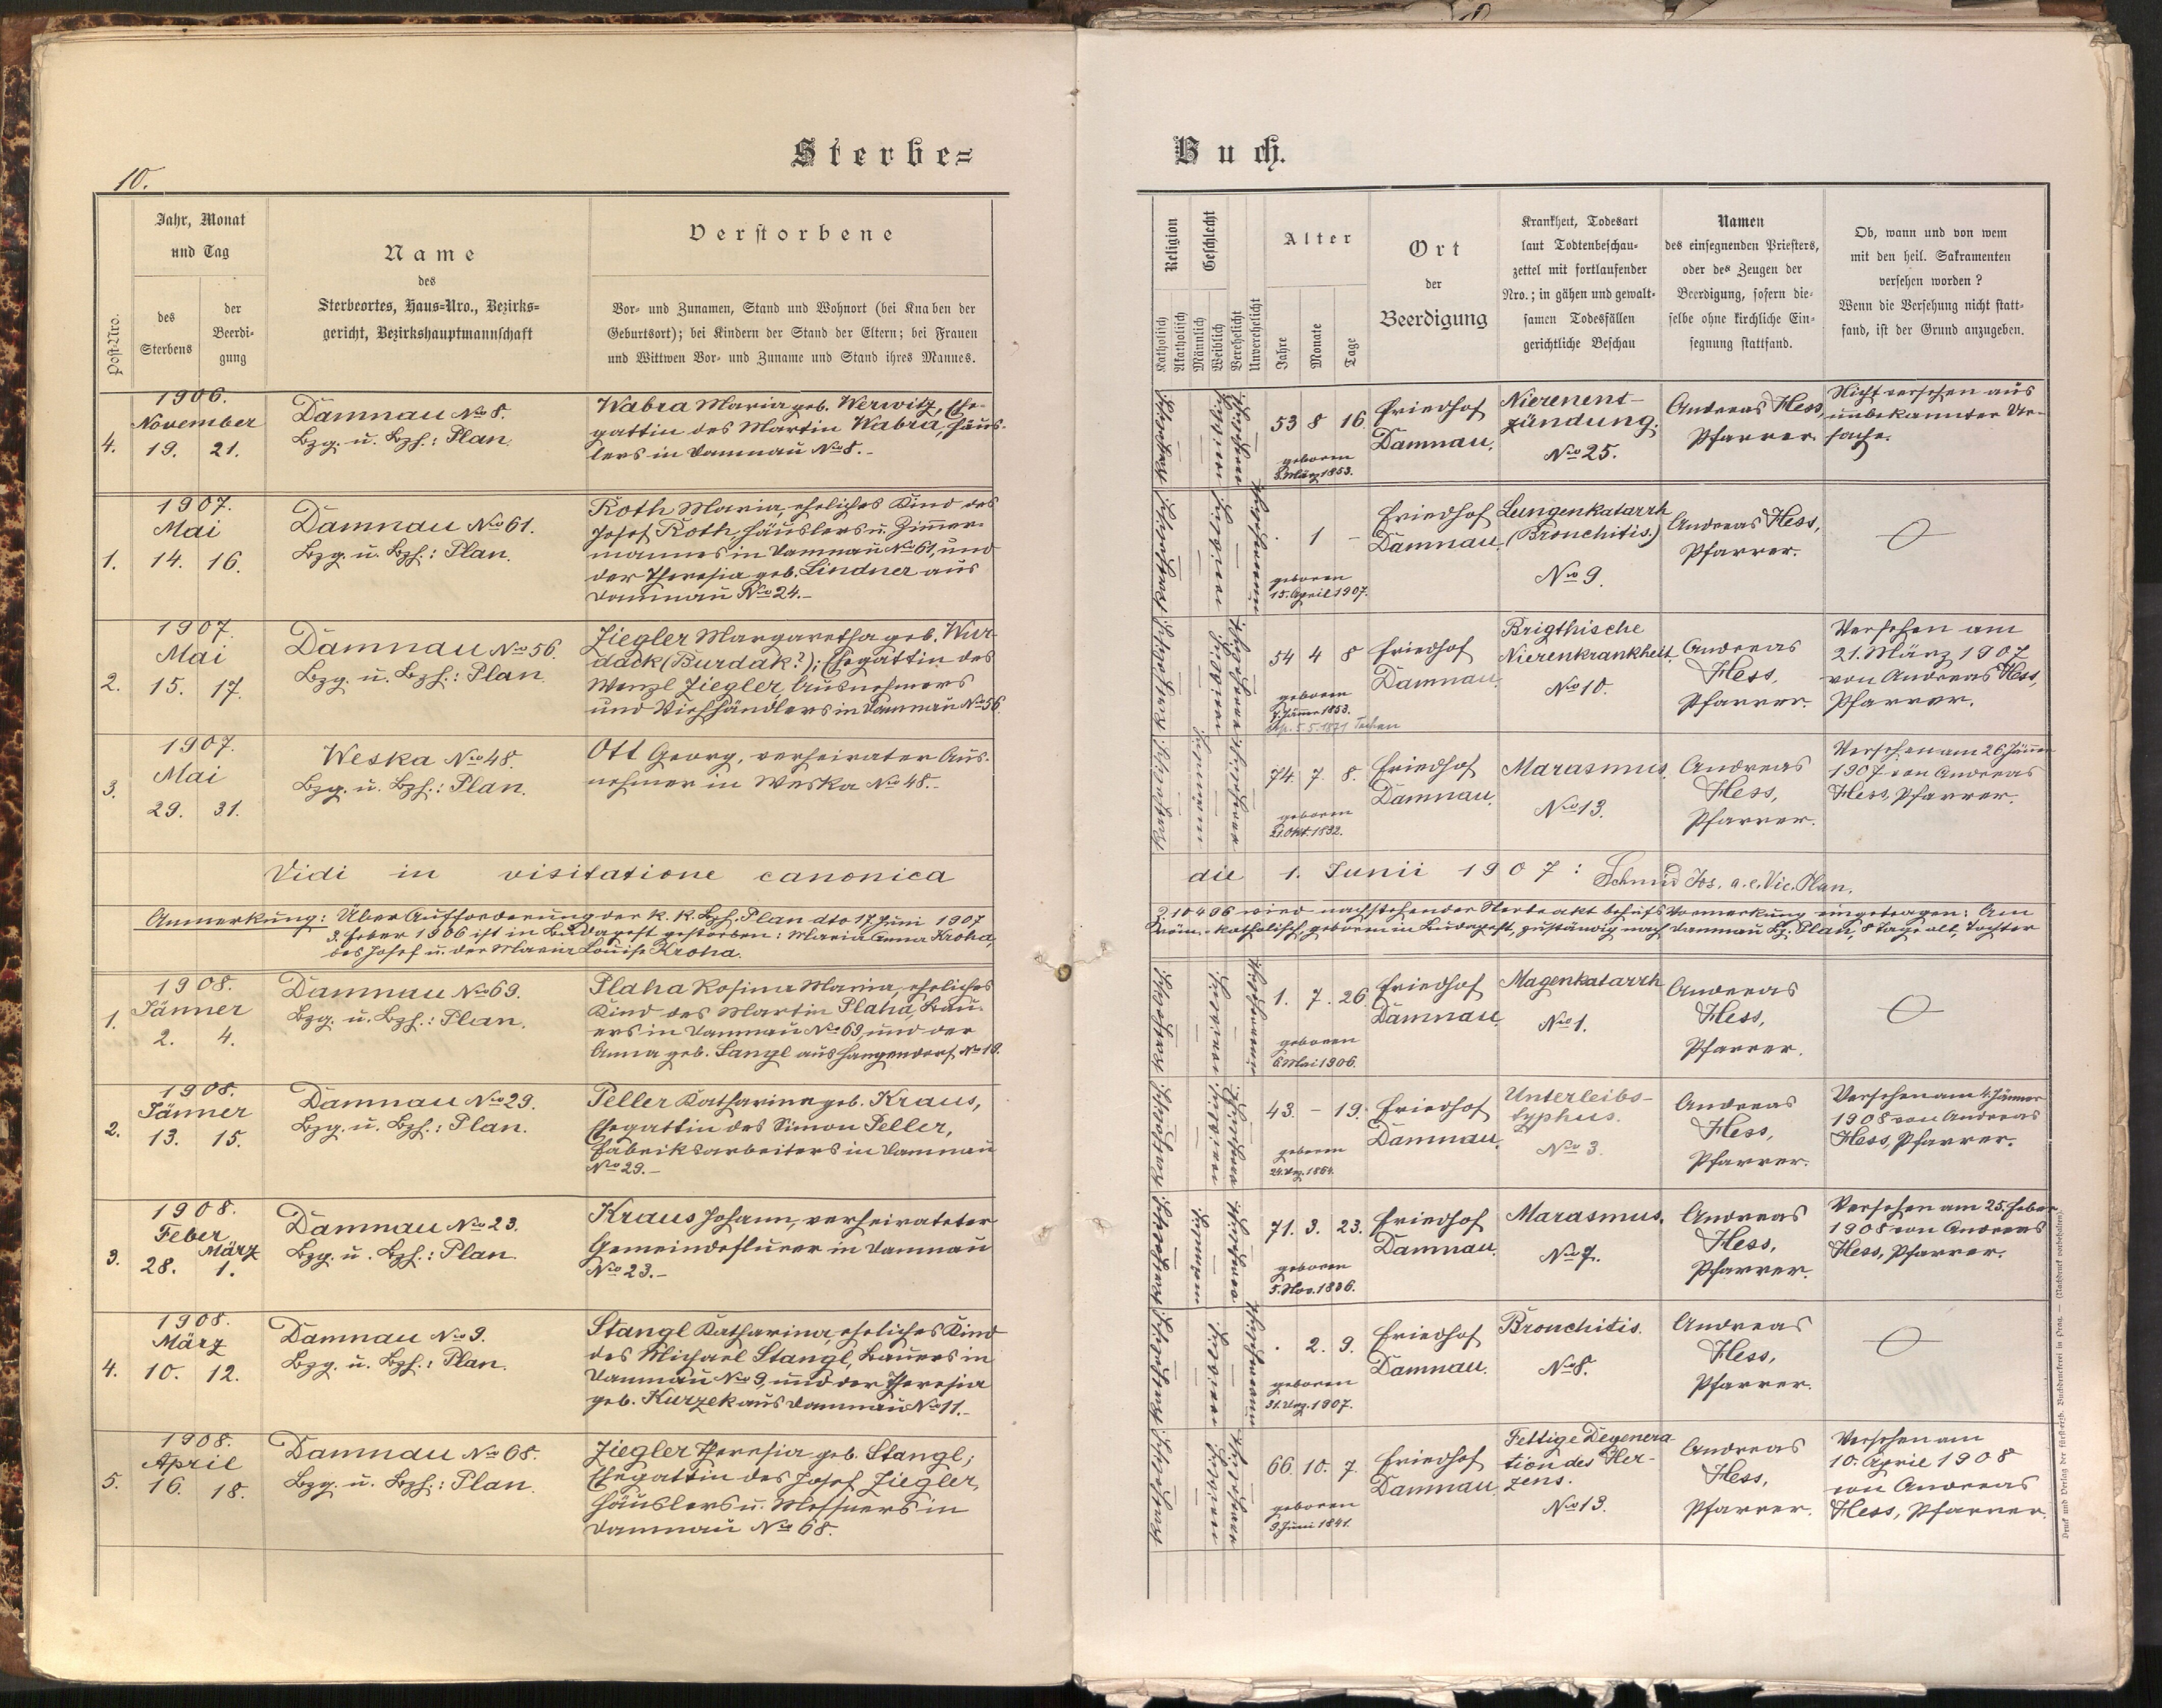 Sterbe=
Buch.
10.
Post-Nro.
Jahr, Monat
und Tag
des
Sterbens
der
Beerdi-
gung
Name
des
Sterbeortes, Haus-Nro., Bezirks=
gericht, Bezirkshauptmannschaft
Verstorbene
Vor- und Zunamen, Stand und Wohnort (bei Knaben der
Geburtsort); bei Kindern der Stand der Eltern; bei Frauen
und Wittwen Vor- und Zuname und Stand ihres Mannes.
Religion
Katholisch
Akatholisch
Geschlecht
Männlich
Weiblich
Verehelicht
Unverehelicht
Alter
Jahre
Monate
Tage
Ort
der
Beerdigung
Krankheit, Todesart
laut Todtenbeschau-
zettel mit fortlaufender
Nro.; in gähen und gewalt-
samen Todesfällen
gerichtliche Beschau
Namen
des einsegnenden Priesters,
oder des Zeugen der
Beerdigung, sofern die-
selbe ohne kirchliche Ein-
segnung stattfand.
Ob, wann und von wem
mit den heil. Sakramenten
versehen worden?
Wenn die Versehung nicht statt-
fand, ist der Grund anzugeben.
4.
1906.
November
19. 21.
Damnau No 8.
Bzg. u. Bzh.: Plan.
Wabra Maria geb. Werwitz, Ehe-
gattin des Martin Wabra, Häus-
lers in Damnau No 8.-
katholisch
weiblich
verehelicht
53 8 16.
geboren
3. März 1853.
Friedhof
Damnau.
Nierenent-
zündung.
No 25.
Andreas Hess,
Pfarrer.
Nicht versehen aus
unbekannter Ur-
sache.
1.
1907.
Mai
14. 16.
Damnau No 61.
Bzg. u. Bzh.: Plan.
Roth Maria, eheliches Kind des
Josef Roth, Häuslers u. Zimmer-
mannes in Damnau No 61, und
der Theresia geb. Lindner aus
Damnau No 24.-
katholisch
weiblich
. 1 -
geboren
15. April 1907.
Friedhof
Damnau.
Lungenkatarrh
(Bronchitis.)
No 9.
Andreas Hess,
Pfarrer.
2.
1907.
Mai
15. 17.
Damnau No 56.
Bzg. u. Bzh.: Plan.
Ziegler Margaretha geb. Wur-
dack (Burdak?); Ehegattin des
Wenzl Ziegler, Ausnehmers
und Viehhändlers in Damnau No 56.
katholisch
weiblich
54 4 8
geboren
7. Jänner 1853.
5.5.1871
Friedhof
Damnau.
Brigthische
Nierenkrankheit.
No 10.
Andreas
Hess,
Pfarrer.
Versehen am
21. März 1907
von Andreas Hess,
Pfarrer.
3.
1907.
Mai
29. 31.
Weska No 48.
Bzg. u. Bzh.: Plan.
Ott Georg, verheirateter Aus-
nehmer in Weska No 48.-
katholisch
männlich
74. 7. 8.
geboren
21. Okt. 1832.
Friedhof
Damnau.
Marasmus.
No 13.
Andreas
Hess,
Pfarrer.
Versehen am 26. Jänner
1907 von Andreas
Hess, Pfarrer.
Vidi in visitatione canonica
die 1. Junii 1907: Schmid Jos. a.e. Vic. Plan.
Anmerkung: Über Aufforderung der k. k. Bzh. Plan dto 17 Juni 1907
Z. 10406 wird nachstehender Sterbeakt behufs Vormerkung eingetragen: Am
3. Feber 1906 ist in Budapest gestorben: Maria Anna Kroha,
röm.-katholisch, geboren in Budapest, zuständig nach Damnau Bz. Plan, 8 Tage alt, Tochter
des Josef u. der Maria Louise Kroha.
1.
1908.
Jänner
2. 4.
Damnau No 69.
Bzg. u. Bzh.: Plan.
Plaha Rosina Maria, eheliches
Kind des Martin Plaha, Bau-
ers in Damnau No 69, und der
Anna geb. Sangl aus Hangendorf No 18.
katholisch
weiblich
1. 7. 26.
geboren
6. Mai 1906.
Friedhof
Damnau.
Magenkatarrh
No 1.
Andreas
Hess,
Pfarrer.
2.
1908.
Jänner
13. 15.
Damnau No 29.
Bzg. u. Bzh.: Plan.
Peller Katharina geb. Kraus,
Ehegattin des Simon Peller,
Fabriksarbeiters in Damnau
No 29.-
katholisch
weiblich
43. - 19.
geboren
24. Dez. 1864.
Friedhof
Damnau.
Unterleibs-
typhus.
No 3.
Andreas
Hess,
Pfarrer.
Versehen am 4. Jänner
1908 von Andreas
Hess, Pfarrer.
3.
1908.
Feber März
28. 1.
Damnau No 23.
Bzg. u. Bzh.: Plan.
Kraus Johann, verheirateter
Gemeindeflurer in Damnau
No 23.-
katholisch
männlich
71. 3. 23.
geboren
5. Nov. 1836.
Friedhof
Damnau.
Marasmus.
No 7.
Andreas
Hess,
Pfarrer.
Versehen am 25. Feber
1908 von Andreas
Hess, Pfarrer.
4.
1908.
März
10. 12.
Damnau No 9.
Bzg. u. Bzh.: Plan.
Stangl Katharina, eheliches Kind
des Michael Stangl, Bauers in
Damnau No 9, und der Theresia
geb. Kurzek aus Damnau No 11.-
katholisch
weiblich
. 2. 9.
geboren
31. Dez. 1907.
Friedhof
Damnau.
Bronchitis.
No 8.
Andreas
Hess,
Pfarrer.
5.
1908.
April
16. 18.
Damnau No 68.
Bzg. u. Bzh.: Plan.
Ziegler Theresia geb. Stangl;
Ehegattin des Josef Ziegler,
Häuslers u. Messners in
Damnau No 68.
katholisch
weiblich
66. 10. 7.
geboren
9. Juni 1841.
Friedhof
Damnau.
Fettige Degenera
tion des Her-
zens.
No 13.
Andreas
Hess,
Pfarrer.
Versehen am
10. April 1908
von Andreas
Hess, Pfarrer.
Druck und Verlag der fürsterzb. Buchdruckerei in Prag. — (Nachdruck vorbehalten.)